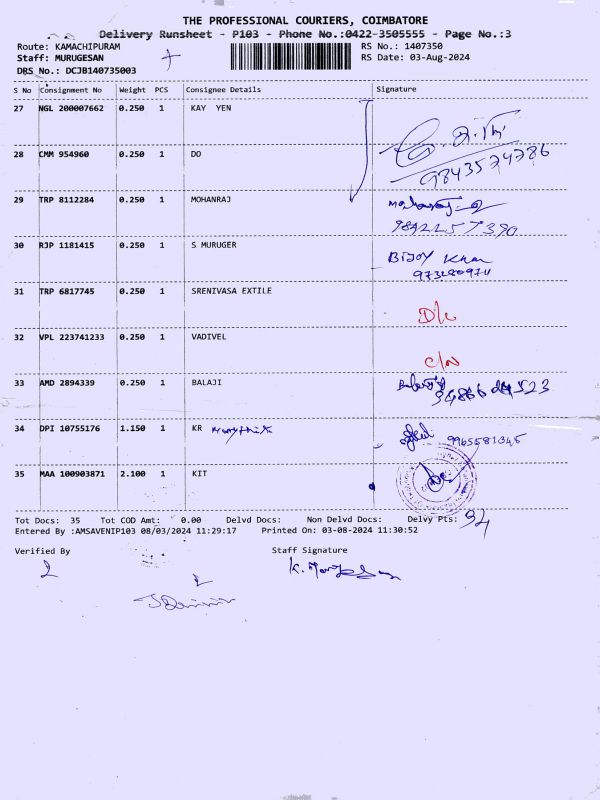 THE PROFESSIONAL COURIERS, COIMBATORE
Delivery Runsheet - P103 - Phone No.:0422-3505555 - Page No.:3
Route: KAMACHIPURAM RS No.: 1407350
Staff: MURUGESAN RS Date: 03-Aug-2024
DRS No.: DCJB140735003
S No Consignment No Weight PCS Consignee Details Signature
27 NGL 200007662 0.250 1 KAY YEN
28 CMM 954960 0.250 1 DO
9843574786
29 TRP 8112284 0.250 1 MOHANRAJ
30 RJP 1181415 0.250 1 S MURUGER Bijoy Khan
31 TRP 6817745 0.250 1 SRENIVASA EXTILE
D/L
32 VPL 223741233 0.250 1 VADIVEL
33 AMD 2894339 0.250 1 BALAJI
34 DPI 10755176 1.150 1 KR
9965581345
35 MAA 100903871 2.100 1 KIT
Tot Docs: 35 Tot COD Amt: 0.00 Delvd Docs: Non Delvd Docs: Delvy Pts:
Entered By :AMSAVENIP103 08/03/2024 11:29:17 Printed On: 03-08-2024 11:30:52
Verified By Staff Signature